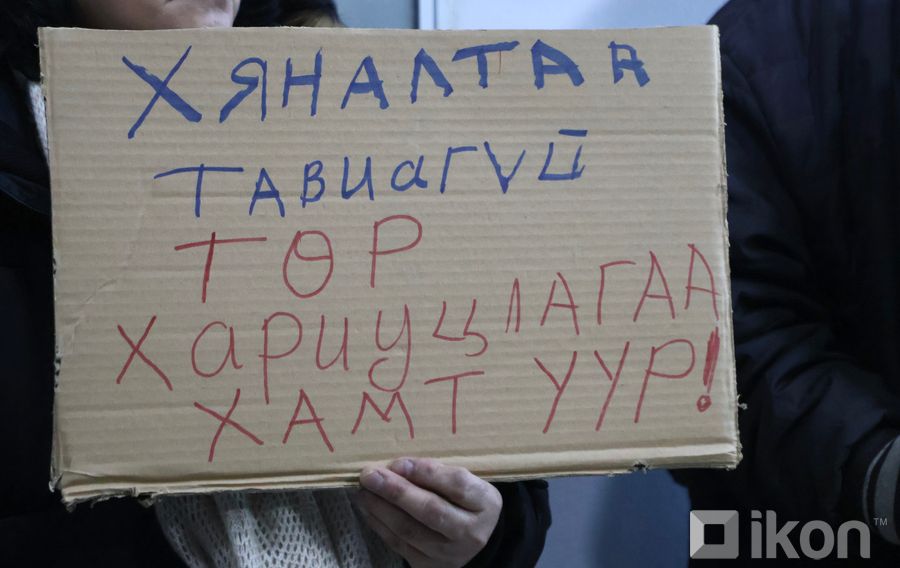 ХЯНАЛТАА
ТАВИАГҮЙ
ТӨР
ХАРИУЦЛАГАА
ХАМТ ҮҮР!
ikon™